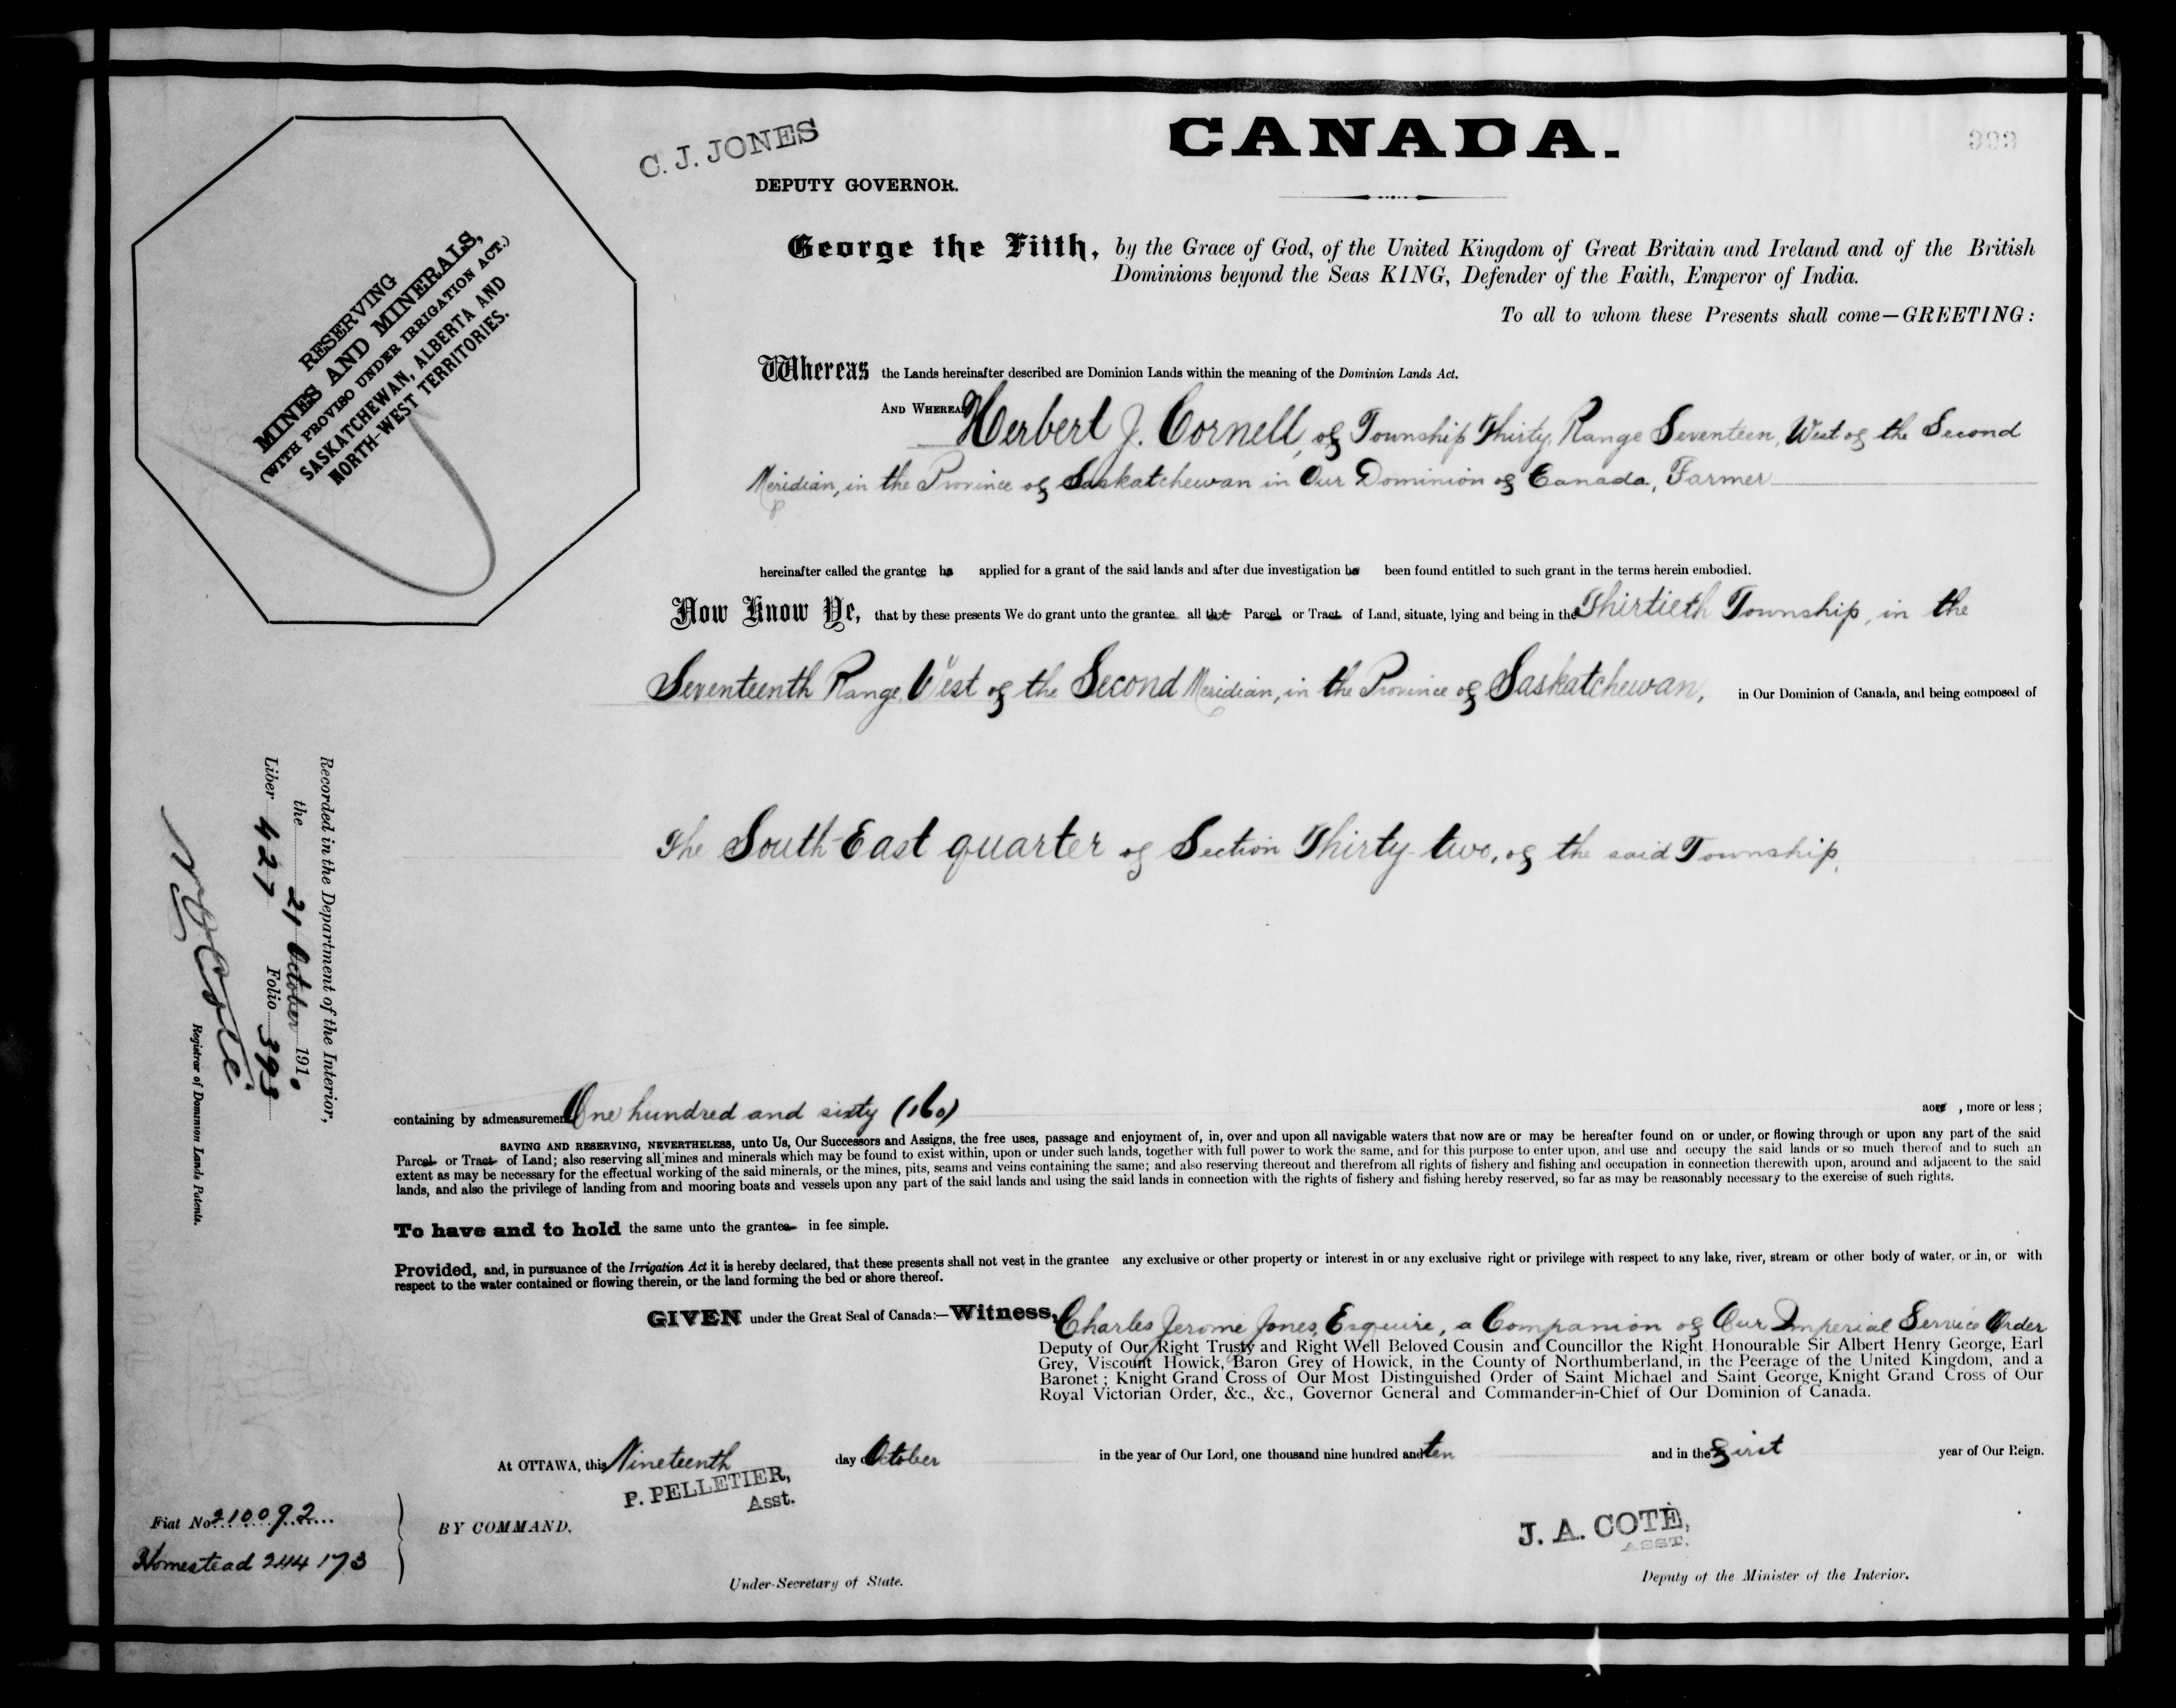 393
C. J. JONES
DEPUTY GOVERNOR.
CANADA.
RESERVING
MINES AND MINERALS,
(WITH PROVISO UNDER IRRIGATION ACT.)
SASKATCHEWAN, ALBERTA AND
NORTH-WEST TERRITORIES.
George the Fifth, by the Grace of God, of the United Kingdom of Great Britain and Ireland and of the British
Dominions beyond the Seas KING, Defender of the Faith, Emperor of India.
To all to whom these Presents shall come—GREETING:
Whereas the Lands hereinafter described are Dominion Lands within the meaning of the Dominion Lands Act.
AND WHEREAS Herbert J. Cornell, of Township Thirty, Range Seventeen, West of the Second
Meridian, in the Province of Saskatchewan in Our Dominion of Canada, Farmer
hereinafter called the grantee ha applied for a grant of the said lands and after due investigation ha been found entitled to such grant in the terms herein embodied.
Now Know Ye, that by these presents We do grant unto the grantee all that Parcel or Tract of Land, situate, lying and being in the Thirtieth Township, in the
Seventeenth Range, West of the Second Meridian, in the Province of Saskatchewan, in Our Dominion of Canada, and being composed of
The South East quarter of Section Thirty-two, of the said Township.
Recorded in the Department of the Interior,
the 21 October 1910
Liber 427 Folio 393
N. O. Coté
Registrar of Dominion Lands Patents.
containing by admeasurement One hundred and sixty (160) acre , more or less ;
SAVING AND RESERVING, NEVERTHELESS, unto Us, Our Successors and Assigns, the free uses, passage and enjoyment of, in, over and upon all navigable waters that now are or may be hereafter found on or under, or flowing through or upon any part of the said
Parcel or Tract of Land; also reserving all mines and minerals which may be found to exist within, upon or under such lands, together with full power to work the same, and for this purpose to enter upon, and use and occupy the said lands or so much thereof and to such an
extent as may be necessary for the effectual working of the said minerals, or the mines, pits, seams and veins containing the same; and also reserving thereout and therefrom all rights of fishery and fishing and occupation in connection therewith upon, around and adjacent to the said
lands, and also the privilege of landing from and mooring boats and vessels upon any part of the said lands and using the said lands in connection with the rights of fishery and fishing hereby reserved, so far as may be reasonably necessary to the exercise of such rights.
To have and to hold the same unto the grantee in fee simple.
Provided, and, in pursuance of the Irrigation Act it is hereby declared, that these presents shall not vest in the grantee any exclusive or other property or interest in or any exclusive right or privilege with respect to any lake, river, stream or other body of water, or in, or with
respect to the water contained or flowing therein, or the land forming the bed or shore thereof.
GIVEN under the Great Seal of Canada:—Witness, Charles Jerome Jones, Esquire, a Companion of Our Imperial Service Order
Deputy of Our Right Trusty and Right Well Beloved Cousin and Councillor the Right Honourable Sir Albert Henry George, Earl
Grey, Viscount Howick, Baron Grey of Howick, in the County of Northumberland, in the Peerage of the United Kingdom, and a
Baronet; Knight Grand Cross of Our Most Distinguished Order of Saint Michael and Saint George, Knight Grand Cross of Our
Royal Victorian Order, &c., &c., Governor General and Commander-in-Chief of Our Dominion of Canada.
At OTTAWA, this Nineteenth day of October in the year of Our Lord, one thousand nine hundred and ten and in the First year of Our Reign.
P. PELLETIER,
Asst.
J. A. COTÉ,
ASST.
Fiat No. 210092
Homestead 244173
BY COMMAND,
Under-Secretary of State.
Deputy of the Minister of the Interior.